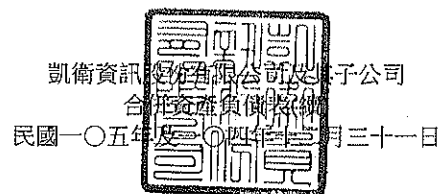 凱衛資訊股份有限公司及其子公司
合併資產負債表(續)
民國一〇五年及一〇四年十二月三十一日